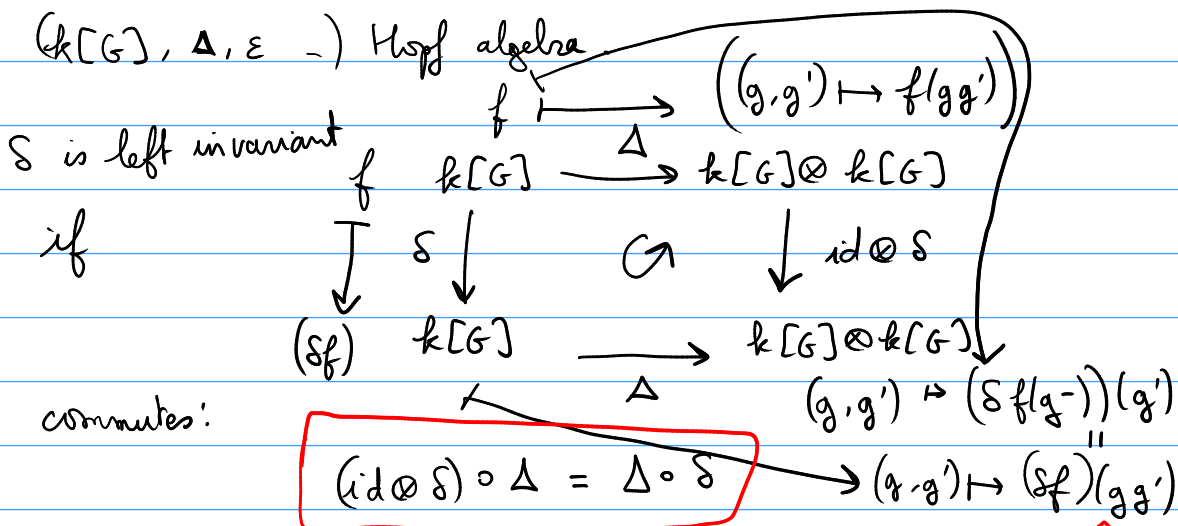 (k[G], Δ, ε -) Hopf algebra
f ⟼ ((g,g') ↦ f(gg'))
Δ
δ is left invariant
f k[G] ⟶ k[G]⊗k[G]
if
δ ↓ ↺ ↓ id⊗δ
(δf) k[G] ⟶ k[G]⊗k[G]
Δ
(g,g') ↦ (δf(g-))(g')
commutes:
=
(id⊗δ)∘Δ = Δ∘δ
(g,g') ↦ (δf)(gg')